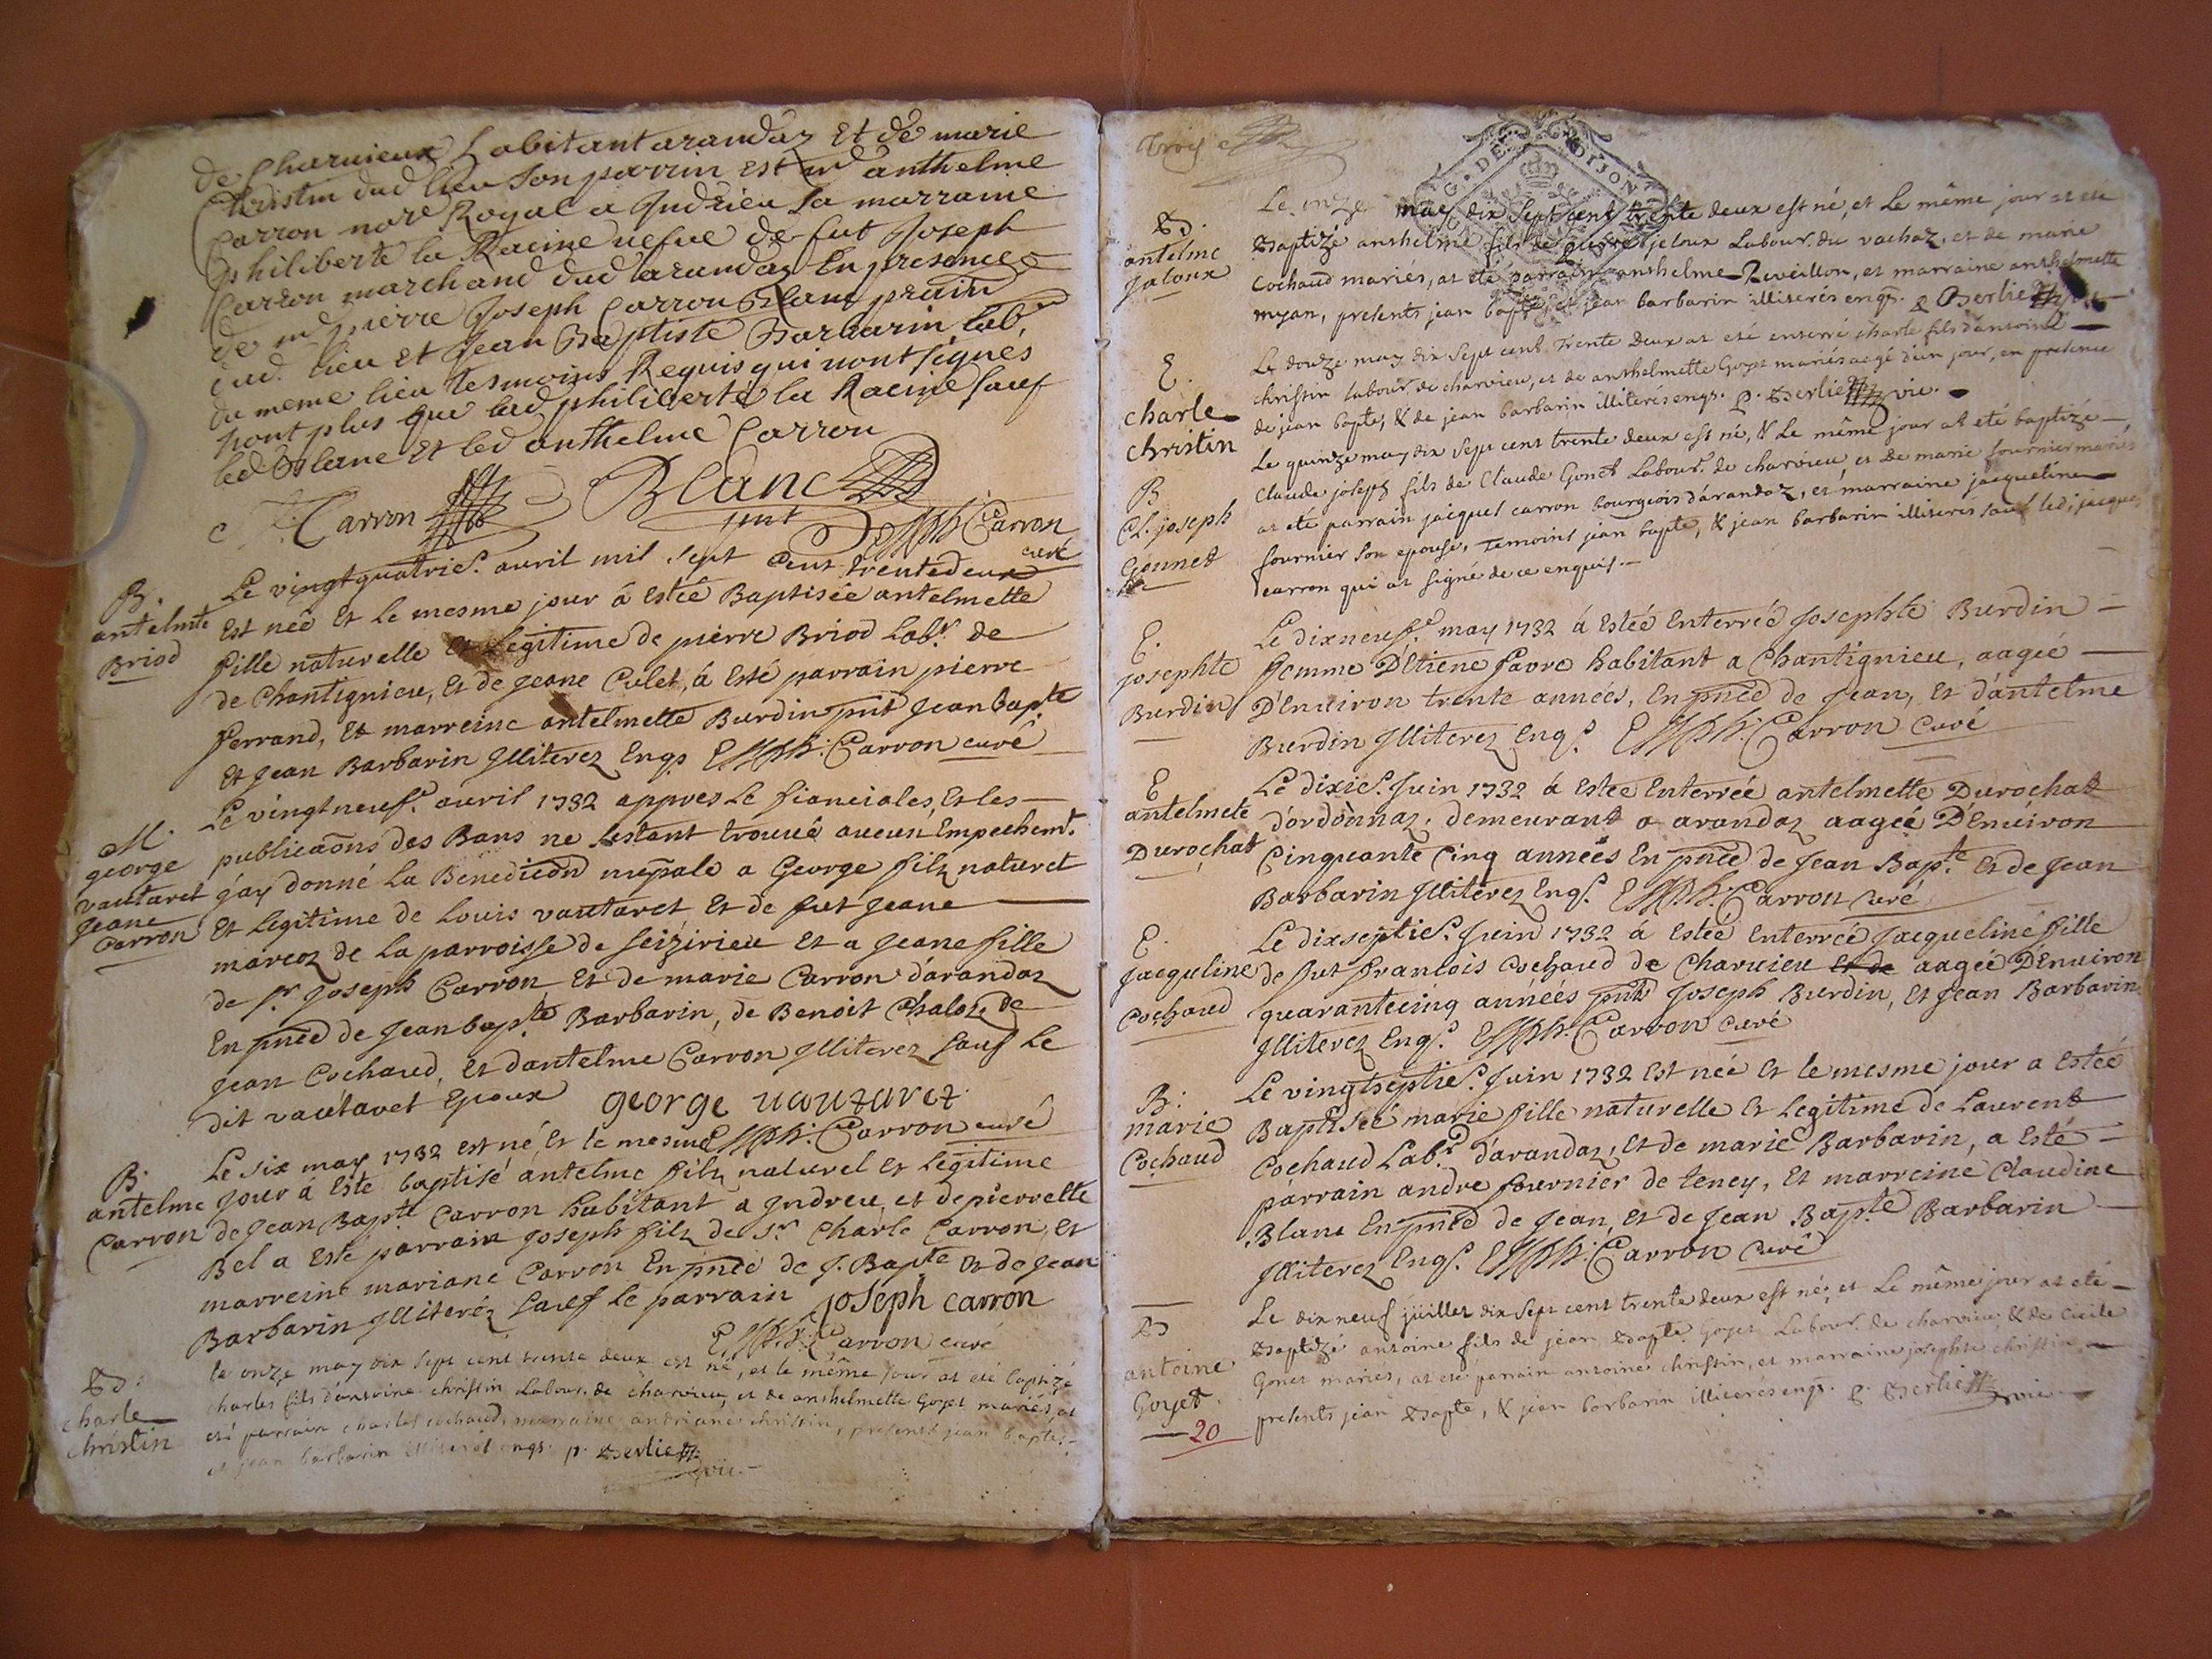 de Charuieux habitant arandaz Et de marie
Christin dud lieu Son parrin est mr anthelme
Carron nore Royal a Jndrieu La marraine
philiberte la Racine uefue de fut Joseph
Carron marchand dud arandaz En presence
de mr pierre Joseph Carron Blanc
dud. lieu Et Jean Baptiste Barbarin lab.
du meme lieu tesmoins Requis qui nont signes
nont plus que lad philiberte la Racine sauf
led Blanc et led anthelme Carron
Carron Blanc
Carron curé
B.
antelmte
Briod
Le vingtquatrie. auril mil sept Cent trentedeux
Est neé Et le mesme jour á Estée Baptisée antelmette
fille naturelle Et Legitime de pierre Briod Labr. de
de Chantignieu, Et de Jeane Culet, á Esté parrain pierre
ferrand, Et marreine antelmette Burdin pnt Jean Bapte
Et Jean Barbarin Jlliterez Enqs Carron curé
M.
george
vautaret
Jeane
Carron
Le vingtneuf. auril 1732 appres Le fianciales, Et les
publicaõns des Bans ne sestant trouué aucun Empechemt.
j'ay donné La Benedicõn nupale a George filz naturel
Et Legitime de Louis vautaret Et de fut Jeane
marcoz de La parroisse de seizirieu Et a Jeane fille
de sr Joseph Carron Et de marie Carron d'arandaz
En pnce de Jean bapte Barbarin, de Benoit Chaloz de
Jean Cochaud, Et dantelme Carron Jlliterez sauf Le
dit vautaret Epoux george uautaret
Carron curé
B
antelme
Carron
Le six may 1732 est né, Et le mesme
Jour á Este baptisé antelme filz naturel Et Legitime
de Jean Bapte Carron habitant a Jndreu, et de pierrette
Bel a Esté parrain Joseph filz de sr Charle Carron, Et
marreine mariane Carron En pnce de J. Bapte Et de Jean
Barbarin Jlliteréz sauf le parrain joseph carron
Carron curé
B.
charle
christin
le onze may dix sept cent trente deux est né, et le même jour at eté baptizé
charles fils d'antoine christin Labour. de charvieu, et de anthelmette Goyet mariés, at
eté parrain charles cochaud, marraine andriane christin, presents jean bapte,
et jean barbarin illiterés enqs. p. Berlie vic.
trois
G. DE DIJON
B.
antelme
Jaloux
Le onze may dix sept cent trente deux est né, et Le même jour at eté
Baptizé anthelme fils de pierre jeloux Labour. du vachaz, et de marie
Cochaud mariés, at eté parrain anthelme Reveillon, et marraine anthelmette
myan, presents jean bapte, et jean barbarin illiterés enqs. p Berlie
E.
charle
christin
Le douze may dix sept cent trente deux at eté enterré charle fils d'antoine
christin labour. de charvieu, et de anthelmette Goyet mariés aegé d'un jour, en presence
de jean bapte, & de jean barbarin illiterés enqs. p. Berlie vic.
B
Cl. joseph
Gonnet
Le quinze may dix sept cent trente deux est né, & Le même jour at eté baptizé
Claude joseph fils de Claude Gonet Labour. de charvieu, et de marie fournier mariés
at eté parrain jacques carron bourgeois d'arandaz, et marraine jacqueline
fournier son epouse, temoins jean bapte, & jean barbarin illiterés sauf led. jacques
carron qui at signé de ce enquis.
E.
josephte
Burdin
Le dixneuf. may 1732 á Estée Enterrée Josephte Burdin
femme D'Etiene favre habitant a Chantignieu, aagée
D'Enuiron trente années, En pnce de Jean, Et d'antelme
Burdin Jlliterez Enqs. Carron Curé
E
antelmete
Durochat
Le dixie. Juin 1732 á Estee Enterrée antelmette Durochat
d'ordonnaz, demeurant a arandaz aagée D'Enuiron
Cinquante Cinq années En pnce de Jean Bapte. Et de Jean
Barbarin Jlliterez Enqs. Carron Curé
E.
Jacquline
Cochaud
Le dixseptie. Juin 1732 á Estée Enterrée Jacqueline fille
de fut francois Cochaud de Charuieu Et de aagée D'Enuiron
quarantecinq années pnts Joseph Burdin, Et Jean Barbarin
Jlliterez Enqs. Carron Curé
B.
marie
Cochaud
Le vingtseptie. Juin 1732 Est née Et le mesme jour a Estée
Baptisée marie fille naturelle Et Legitime de Laurent
Cochaud Labr. d'arandaz, Et de marie Barbarin, a Esté
parrain andre fournier de teney, Et marreine Claudine
Blanc En pnce de Jean, Et de Jean Bapte Barbarin
Jlliterez Enqs. Carron Curé
B
antoine
Goyet.
20
Le dix neuf juillet dix sept cent trente deux est né, et Le même jour at eté
Baptizé antoine fils de jean Bapte Goyet Labour. de charvieu & de Cicile
Gonet mariés, at eté parrain antoine christin, et marraine josephte christin,
presents jean Bapte, & jean barbarin illiterés enqs. p. Berlie vic.